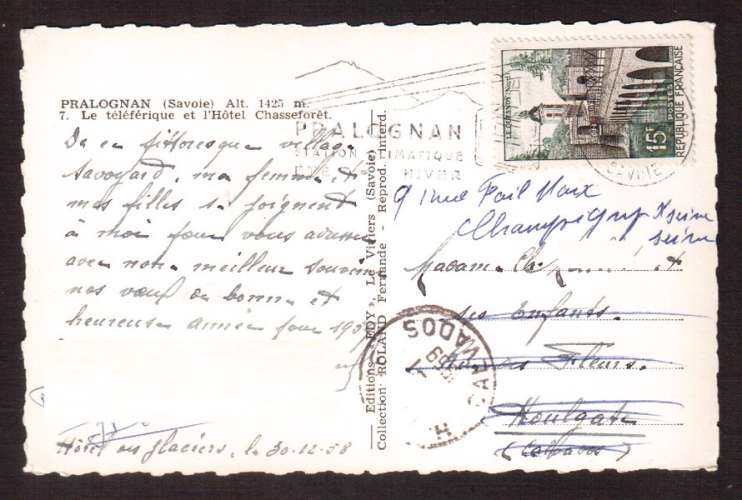 PRALOGNAN (Savoie) Alt. 1425 m.
7. Le téléférique et l'Hôtel Chasseforêt.
De ce pittoresque village
savoyard, ma femme et
mes filles se joignent
à moi pour vous adresser
avec notre meilleur souvenir
nos vœux de bonne et
heureuse année pour 1959
Hôtel des glaciers, le 30-12-58
Editions "EDY", Le Viviers (Savoie)
Collection ROLAND Fernande - Reprod. interd.
PRALOGNAN
STATION CLIMATIQUE
ÉTÉ HIVER
SAVOIE
LE QUESNOY (Nord)
15F
POSTES
REPUBLIQUE FRANÇAISE
9 rue Pail Vaux
Champigny s/ seine
seine
Madame et
ses Enfants
Fleurs
Houlgate
(Calvados)
CALVADOS
1959